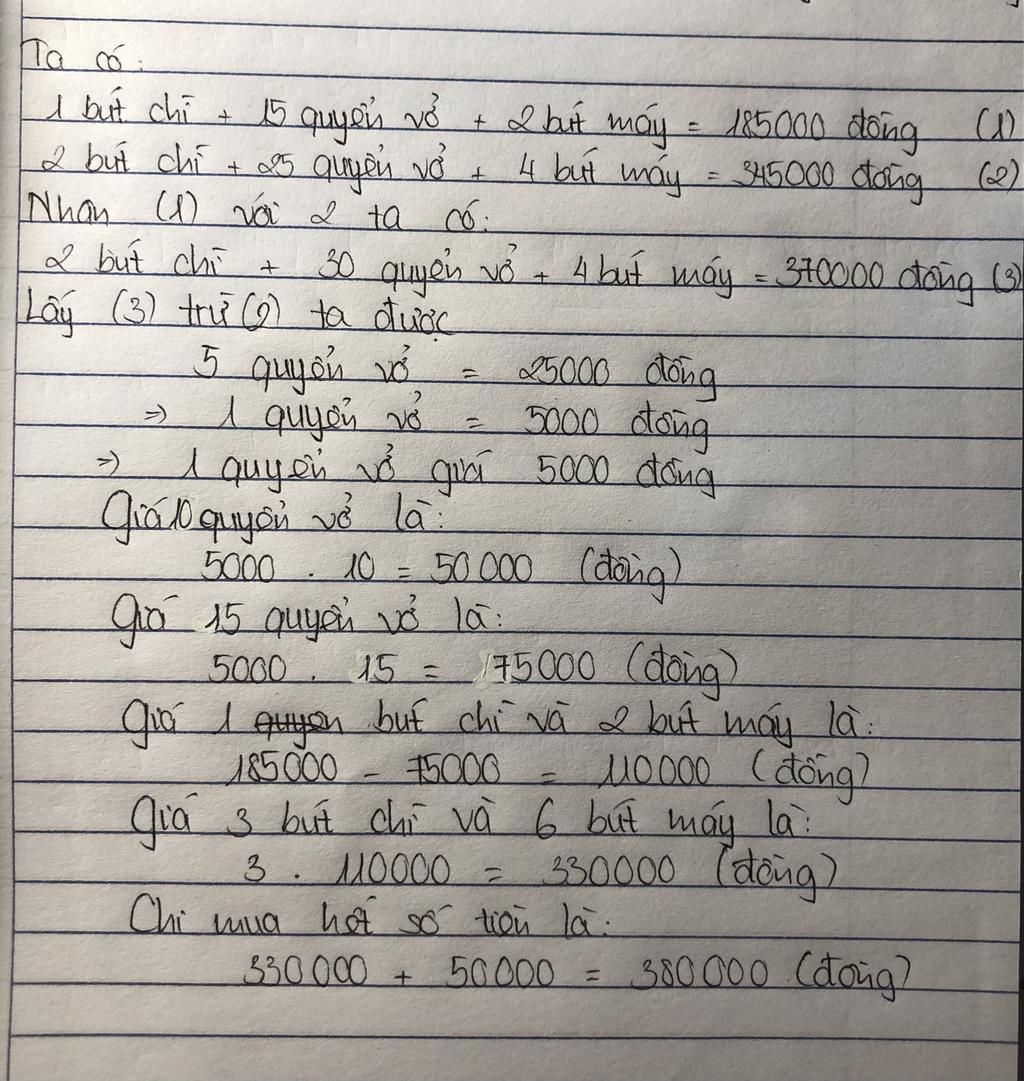 Ta có:
1 bút chì + 15 quyển vở + 2 bút máy = 185000 đồng (1)
2 bút chì + 25 quyển vở + 4 bút máy = 345000 đồng (2)
Nhân (1) với 2 ta có:
2 bút chì + 30 quyển vở + 4 bút máy = 370000 đồng (3)
Lấy (3) trừ (2) ta được
5 quyển vở = 25000 đồng
=> 1 quyển vở = 5000 đồng
=> 1 quyển vở giá 5000 đồng
Giá 10 quyển vở là:
5000 . 10 = 50 000 (đồng)
Giá 15 quyển vở là:
5000 . 15 = 75000 (đồng)
Giá 1 quyen bút chì và 2 bút máy là:
185000 - 75000 = 110000 (đồng)
Giá 3 bút chì và 6 bút máy là:
3 . 110000 = 330000 (đồng)
Chi mua hết số tiền là:
330000 + 50000 = 380000 (đồng)